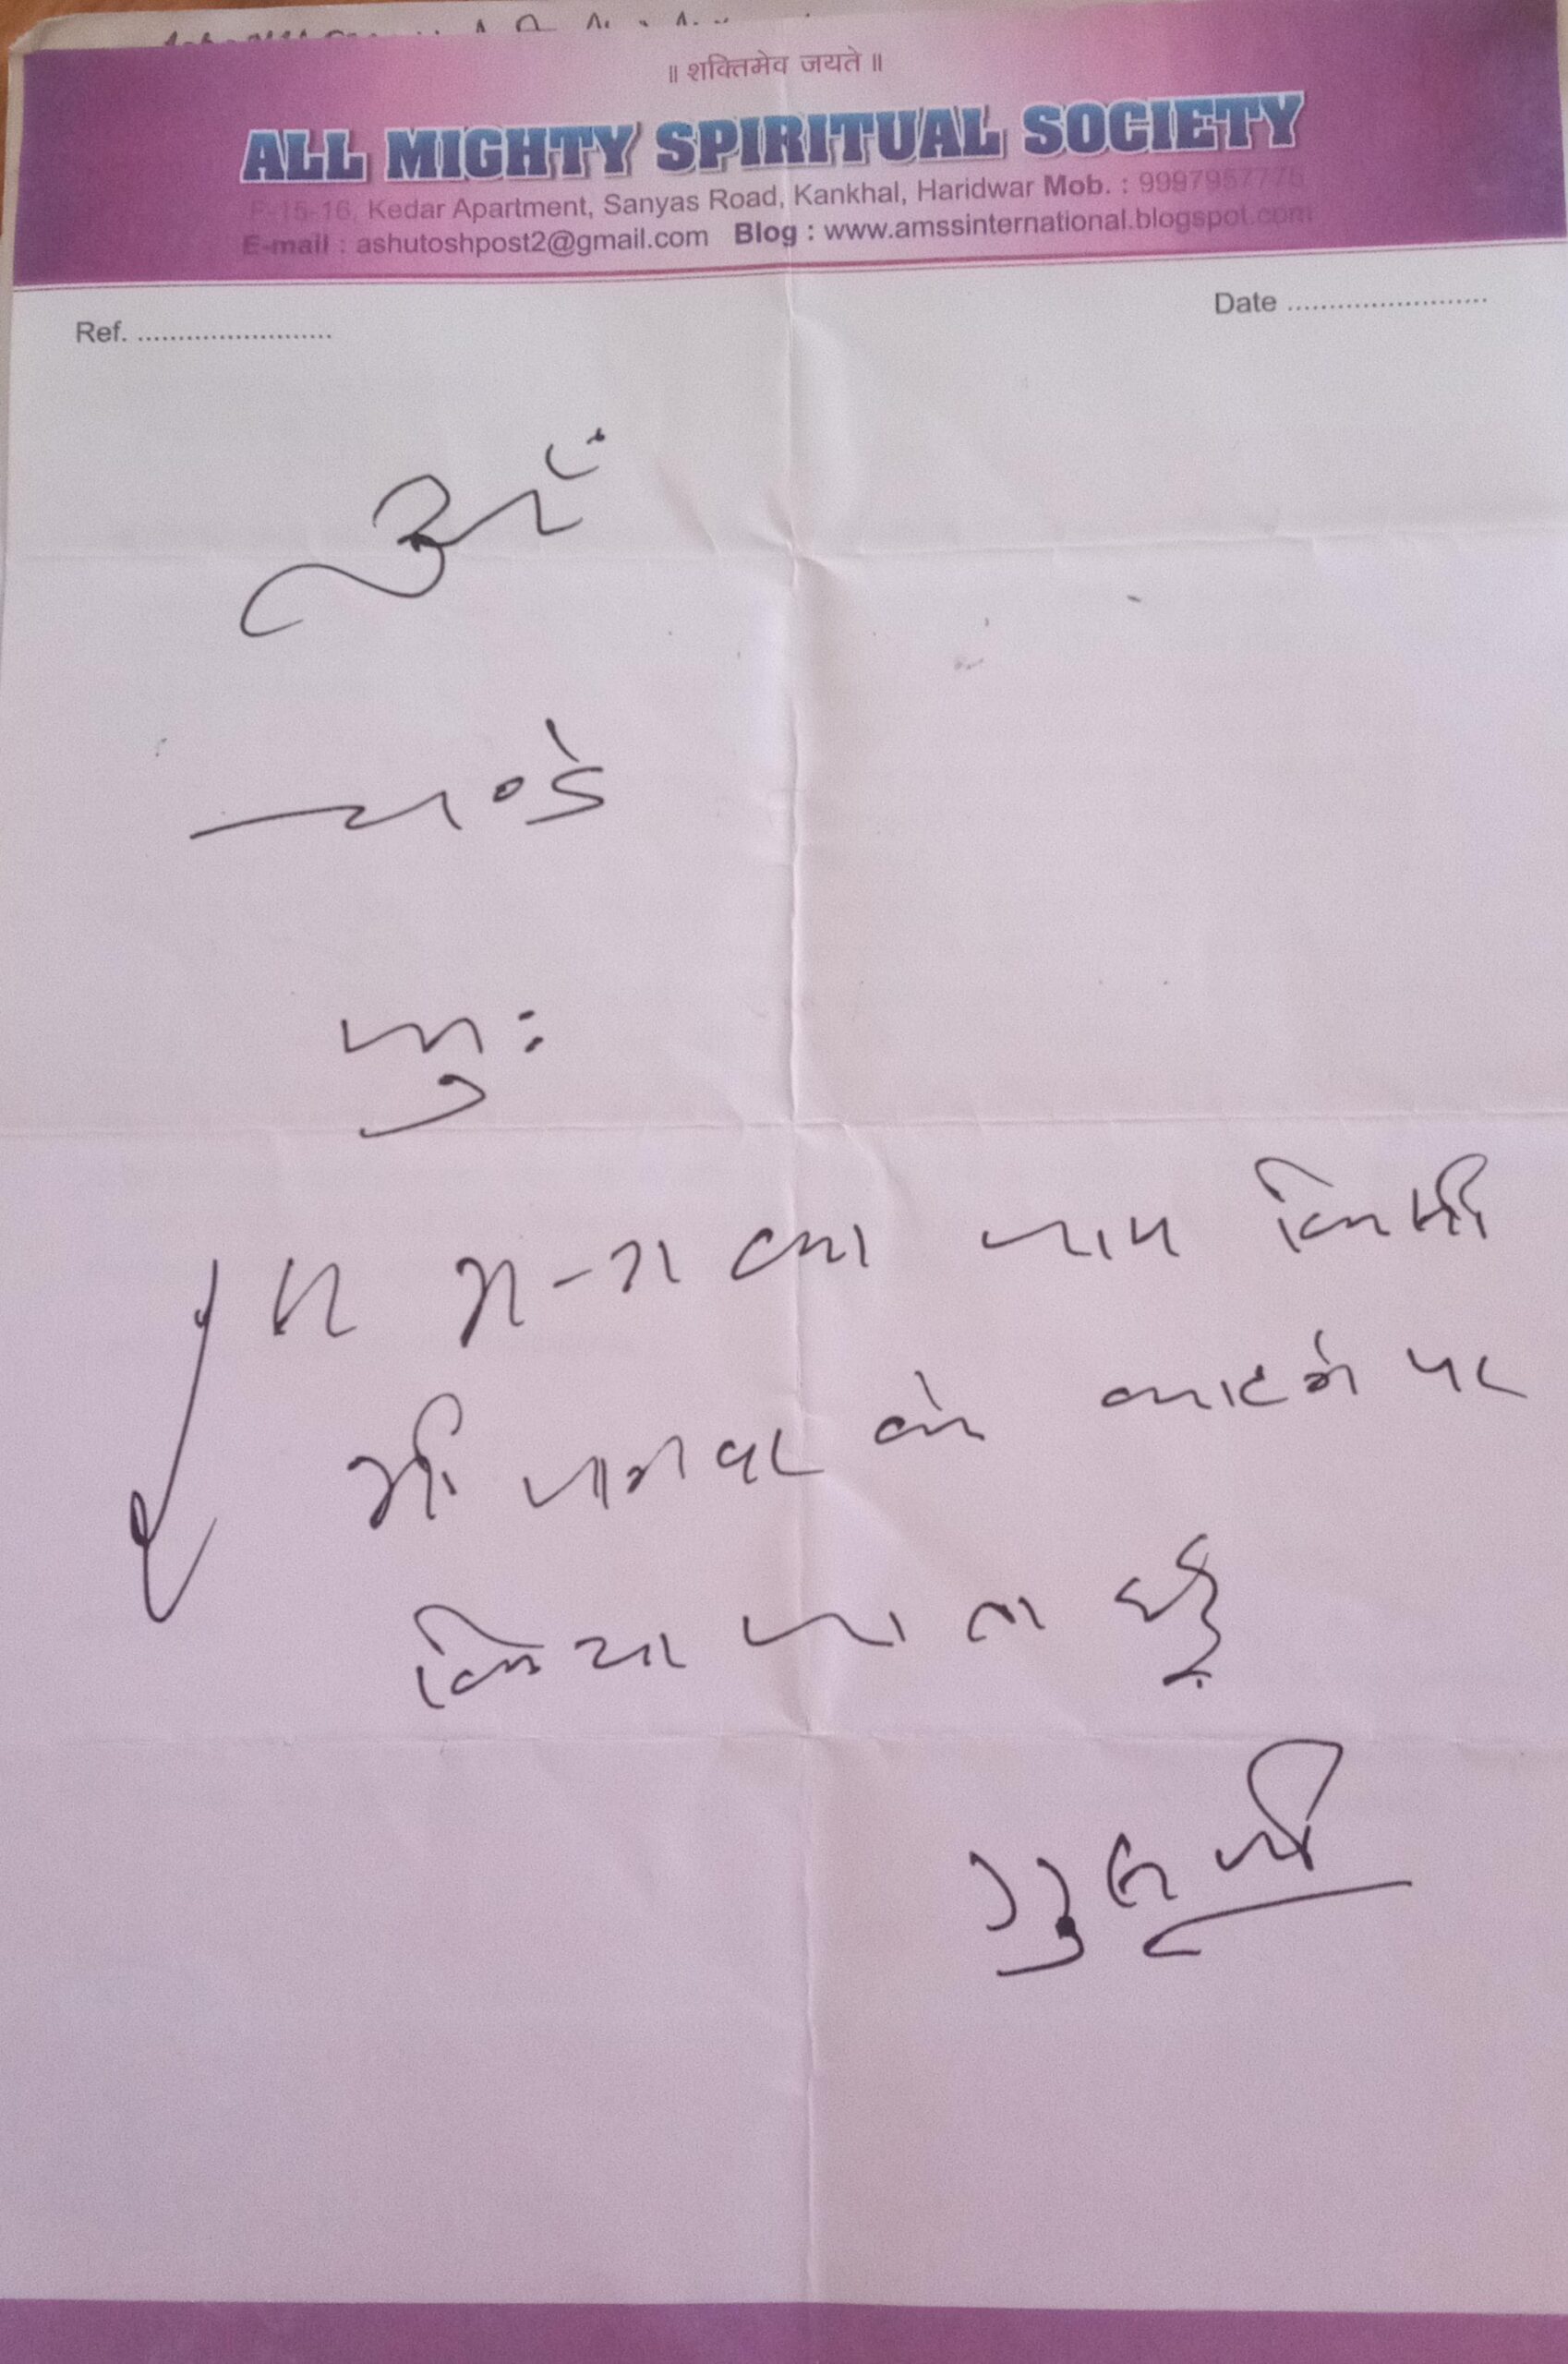 ॥ शक्तिमेव जयते ॥
ALL MIGHTY SPIRITUAL SOCIETY
P-15-16, Kedar Apartment, Sanyas Road, Kankhal, Haridwar Mob. : 9997957776
E-mail : ashutoshpost2@gmail.com Blog : www.amssinternational.blogspot.com
Ref. ........................
Date ........................
ॐ
चण्डे
फुः
मन्त्र का जाप किसी
भी जानवर के काटने पर
किया जाता है
गुरुजी